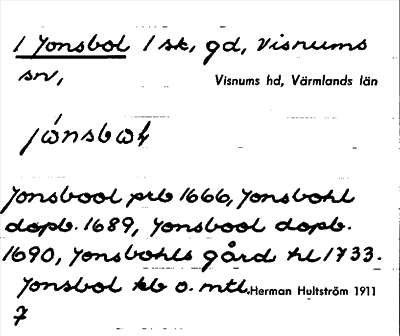 1 Jonsbol 1 sk, gd, Visnums
sn,
Visnums hd, Värmlands län
Jonsbool prb 1666, Jonsbohl
dopb. 1689, Jonsbool dopb.
1690, Jonsbohls gård hl 1733.
Jonsbol kb o. mtl.
Herman Hultström 1911
7